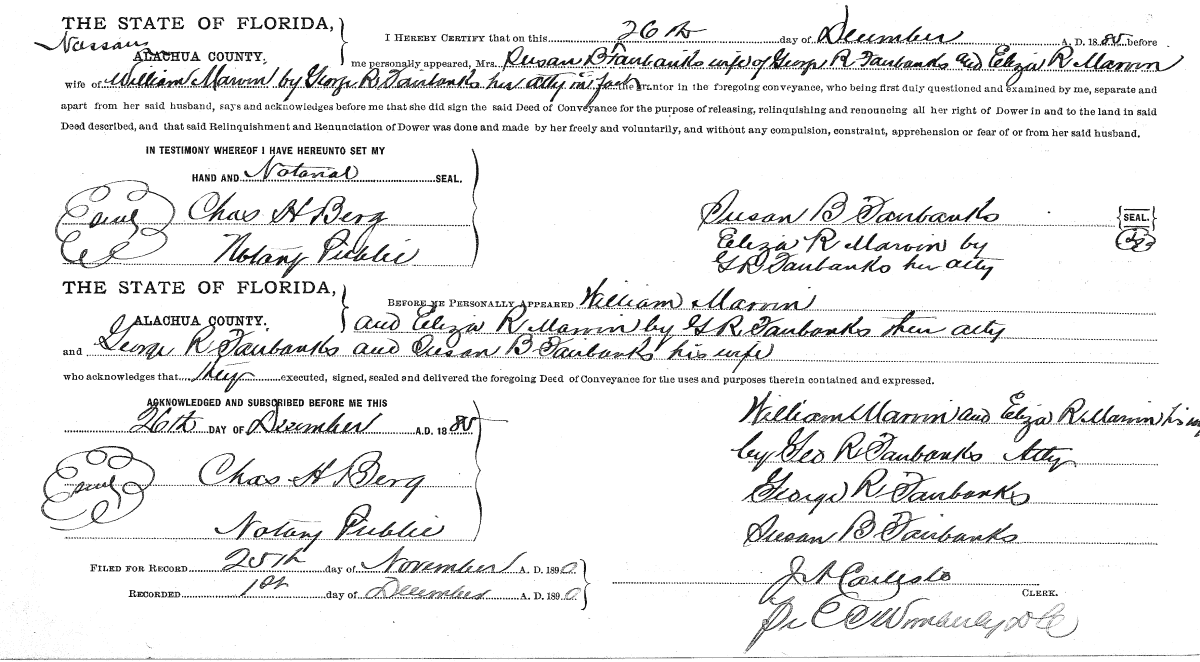 THE STATE OF FLORIDA,
Nassau
ALACHUA COUNTY.
I HEREBY CERTIFY that on this 26th day of December A. D. 1885 before
me personally appeared, Mrs. Susan B Fairbanks wife of George R Fairbanks and Eliza R Marvin
wife of William Marvin by George R Fairbanks her atty in fact the grantor in the foregoing conveyance, who being first duly questioned and examined by me, separate and
apart from her said husband, says and acknowledges before me that she did sign the said Deed of Conveyance for the purpose of releasing, relinquishing and renouncing all her right of Dower in and to the land in said
Deed described, and that said Relinquishment and Renunciation of Dower was done and made by her freely and voluntarily, and without any compulsion, constraint, apprehension or fear of or from her said husband.
IN TESTIMONY WHEREOF I HAVE HEREUNTO SET MY
HAND AND Notarial SEAL.
Seal
Chas H Berg
Notary Public
Susan B Fairbanks
SEAL.
Eliza R Marvin by
G R Fairbanks her atty
THE STATE OF FLORIDA,
ALACHUA COUNTY.
BEFORE ME PERSONALLY APPEARED William Marvin
and Eliza R Marvin by G R Fairbanks their atty
and George R Fairbanks and Susan B Fairbanks his wife
who acknowledges that they executed, signed, sealed and delivered the foregoing Deed of Conveyance for the uses and purposes therein contained and expressed.
ACKNOWLEDGED AND SUBSCRIBED BEFORE ME THIS
26th DAY OF December A.D. 1885
Seal
Chas H Berg
Notary Public
William Marvin and Eliza R Marvin his
by Geo R Fairbanks Atty
George R Fairbanks
Susan B Fairbanks
FILED FOR RECORD 25th day of November A. D. 1890
RECORDED 1st day of December A. D. 1890
J A Carlisle
CLERK.
Pr C C Wimberly D C